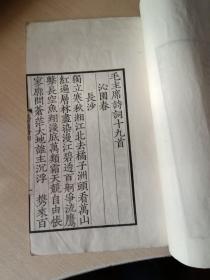 毛主席诗詞十九首
沁園春
長沙
獨立寒秋湘江北去橘子洲頭看萬山
紅遍層林盡染漫江碧透百舸爭流鷹
擊長空魚翔淺底萬類霜天競自由悵
寥廓問蒼茫大地誰主沉浮　携來百